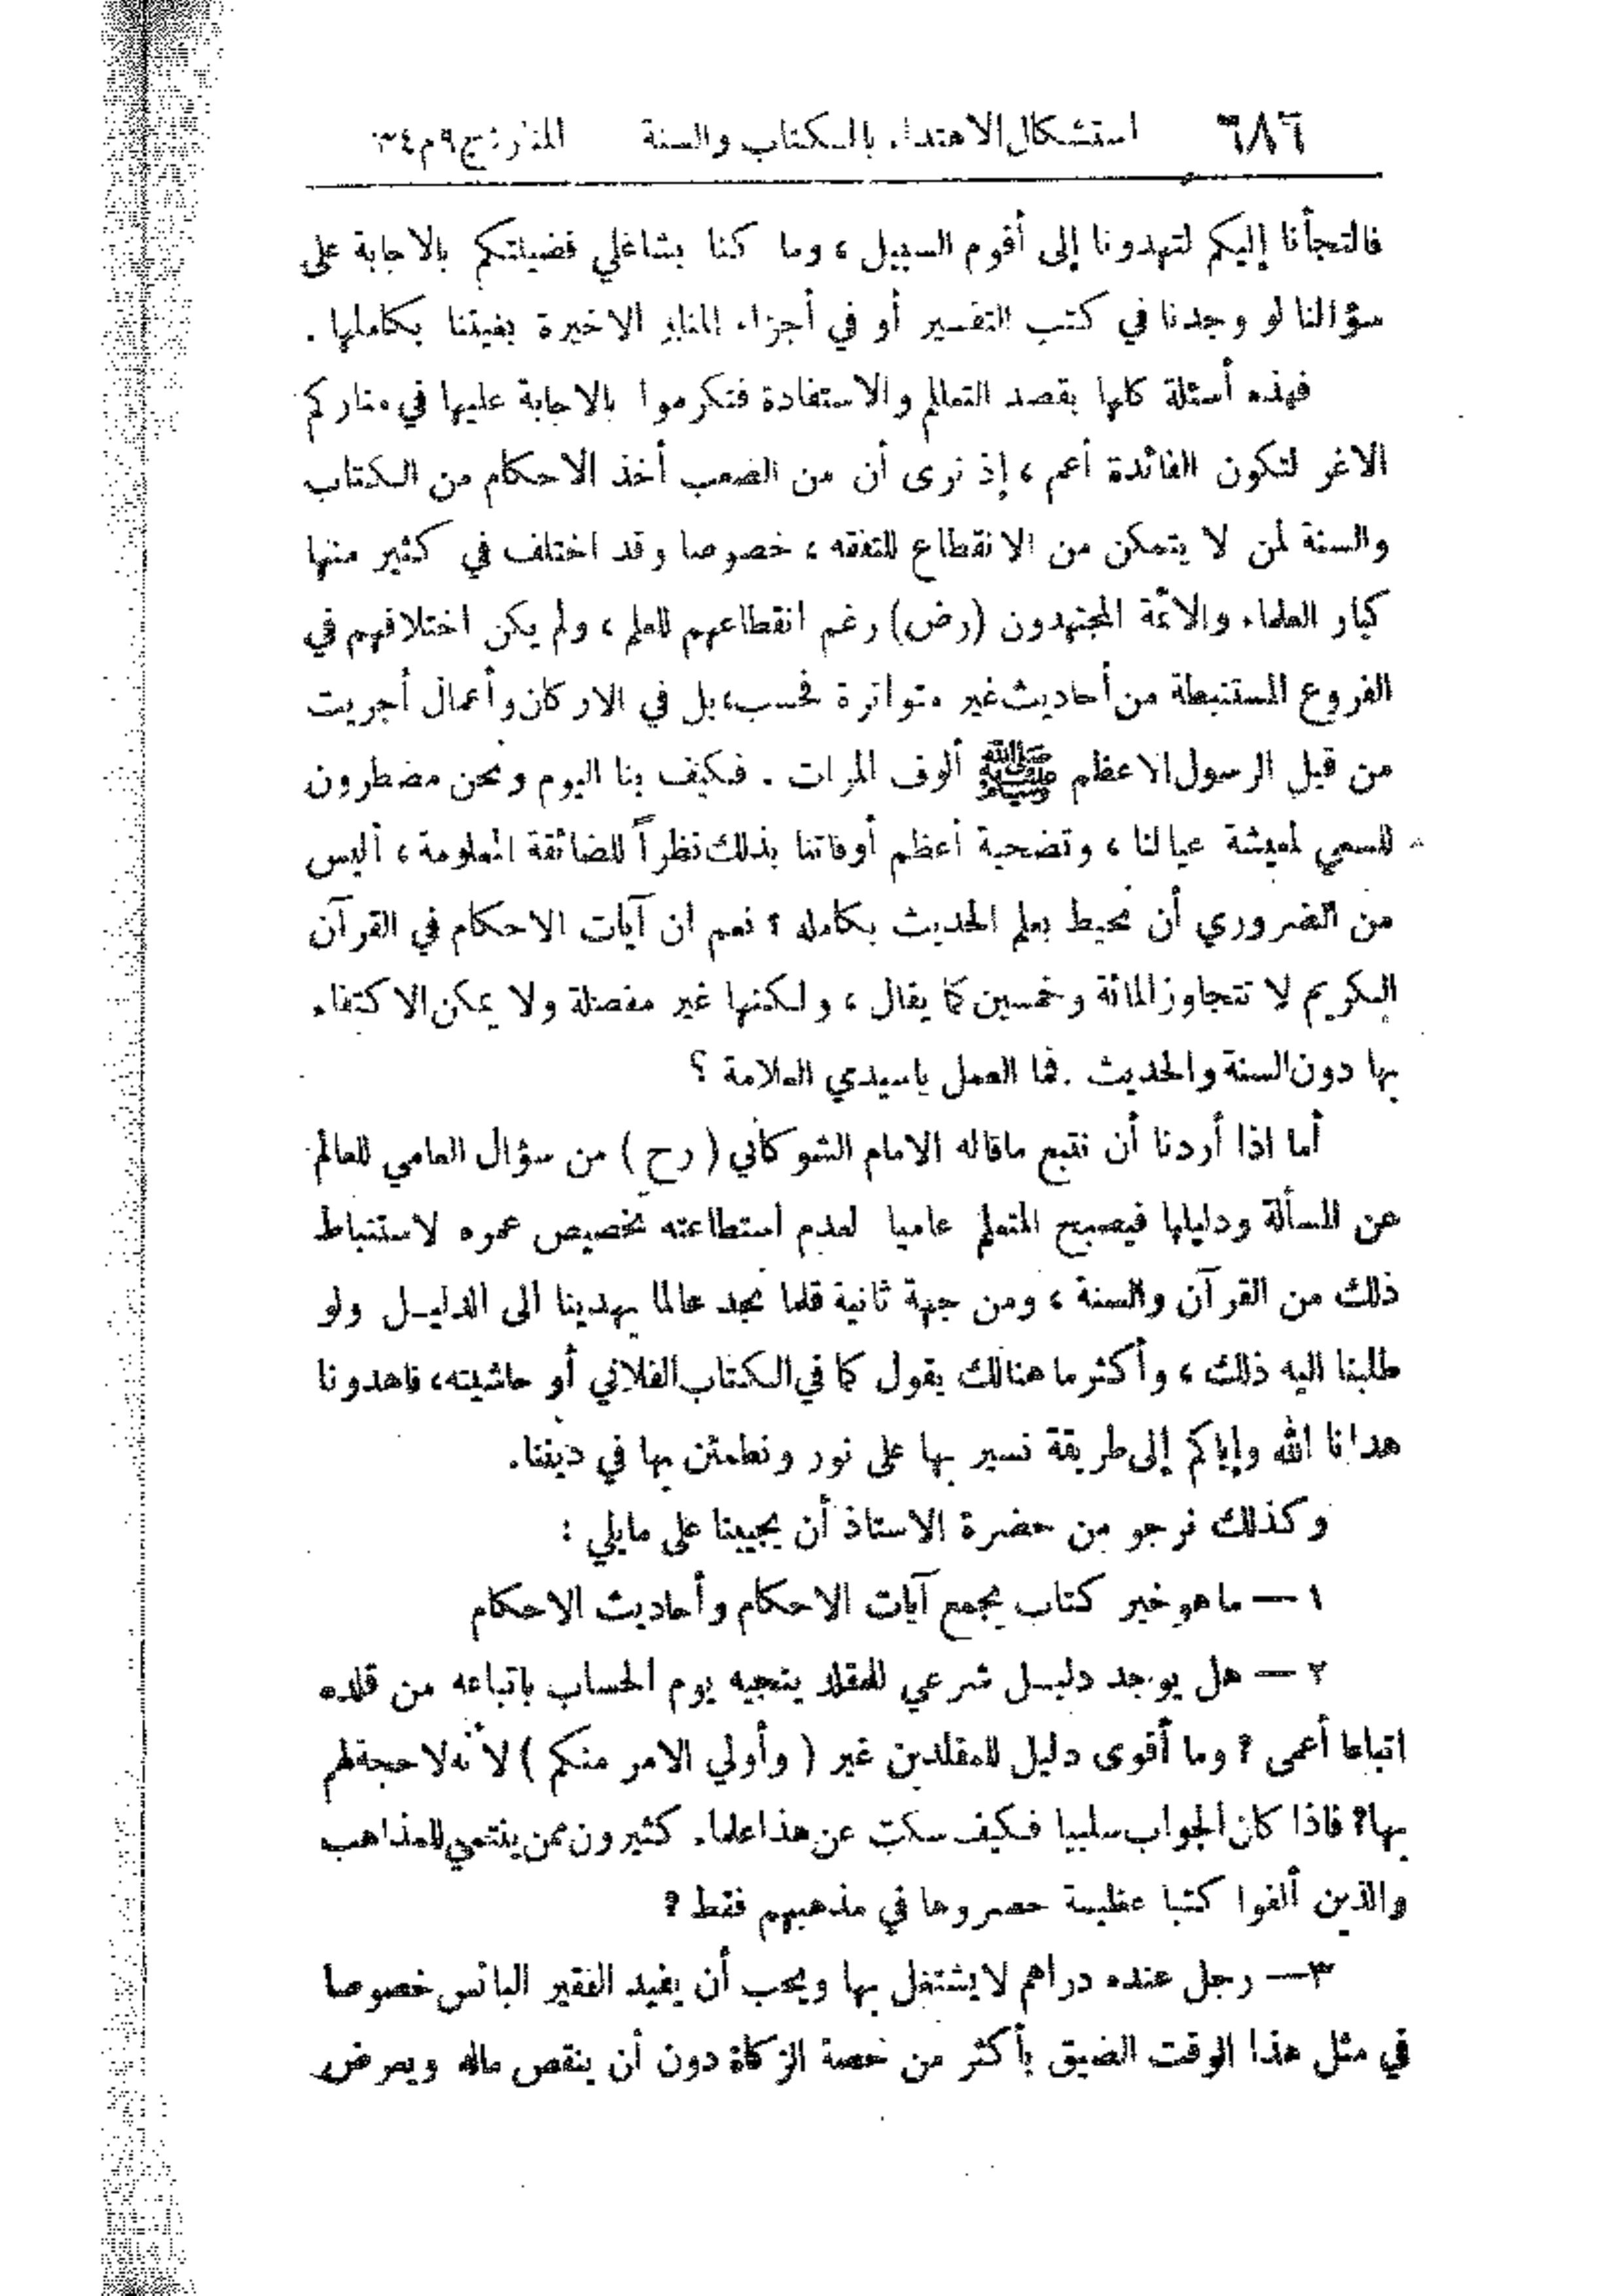 ٦٨٦ استشكال الاهتداء بالكتاب والسنة المنار : ج ٩ م ٣٤
فالتجأنا إليكم لتهدونا إلى أقوم السبيل ، وما كنا بشاغلي فضيلتكم بالاجابة على
سؤالنا لو وجدنا في كتب التفسير أو في أجزاء المنار الاخيرة بغيتنا بكاملها .
فهذه أسئلة كلها بقصد التعلم والاستفادة فتكرموا بالاجابة عليها في مناركم
الاغر لتكون الفائدة أعم ، إذ نرى أن من الصعب أخذ الاحكام من الكتاب
والسنة لمن لا يتمكن من الانقطاع للتفقه ، خصوصا وقد اختلف في كثير منها
كبار العلماء والائمة المجتهدون (رض) رغم انقطاعهم للعلم ، ولم يكن اختلافهم في
الفروع المستنبطة من أحاديث غير متواترة فحسب، بل في الاركان وأعمال أجريت
من قبل الرسول الاعظم ﷺ ألوف المرات . فكيف بنا اليوم ونحن مضطرون
للسعي لمعيشة عيالنا ، وتضحية أعظم أوقاتنا بذلك نظراً للضائقة المعلومة ، أليس
من الضروري أن نحيط بعلم الحديث بكامله ؟ نعم ان آيات الاحكام في القرآن
الكريم لا تتجاوز المائة وخمسين كما يقال ، ولكنها غير مفصلة ولا يمكن الاكتفاء
بها دون السنة والحديث . فما العمل ياسيدي العلامة ؟
أما اذا أردنا أن نتبع ماقاله الامام الشوكاني ( رح ) من سؤال العامي للعالم
عن المسألة ودليلها فيصبح المتعلم عاميا لعدم استطاعته تخصيص عمره لاستنباط
ذلك من القرآن والسنة ، ومن جهة ثانية قلما نجد عالما يهدينا الى الدليل ولو
طلبنا اليه ذلك ، وأكثر ما هنالك يقول كما في الكتاب الفلاني أو حاشيته، فاهدونا
هدانا الله وإياكم إلى طريقة نسير بها على نور ونطمئن بها في ديننا.
وكذلك نرجو من حضرة الاستاذ أن يجيبنا على مايلي :
١ — ما هو خير كتاب يجمع آيات الاحكام وأحاديث الاحكام
٢ — هل يوجد دليل شرعي للمقلد ينجيه يوم الحساب باتباعه من قلده
اتباعا أعمى ؟ وما أقوى دليل للمقلدين غير ( وأولي الامر منكم ) لأنه لا حجة لهم
بها؟ فاذا كان الجواب سلبيا فكيف سكت عن هذا علماء كثيرون ممن ينتمي للمذاهب
والذين ألفوا كتبا عظيمة حصروها في مذهبهم فقط ؟
٣— رجل عنده دراهم لا يشتغل بها ويحب أن يفيد الفقير البائس خصوصا
في مثل هذا الوقت الضيق بأكثر من حصة الزكاة دون أن ينقص ماله ويعرض